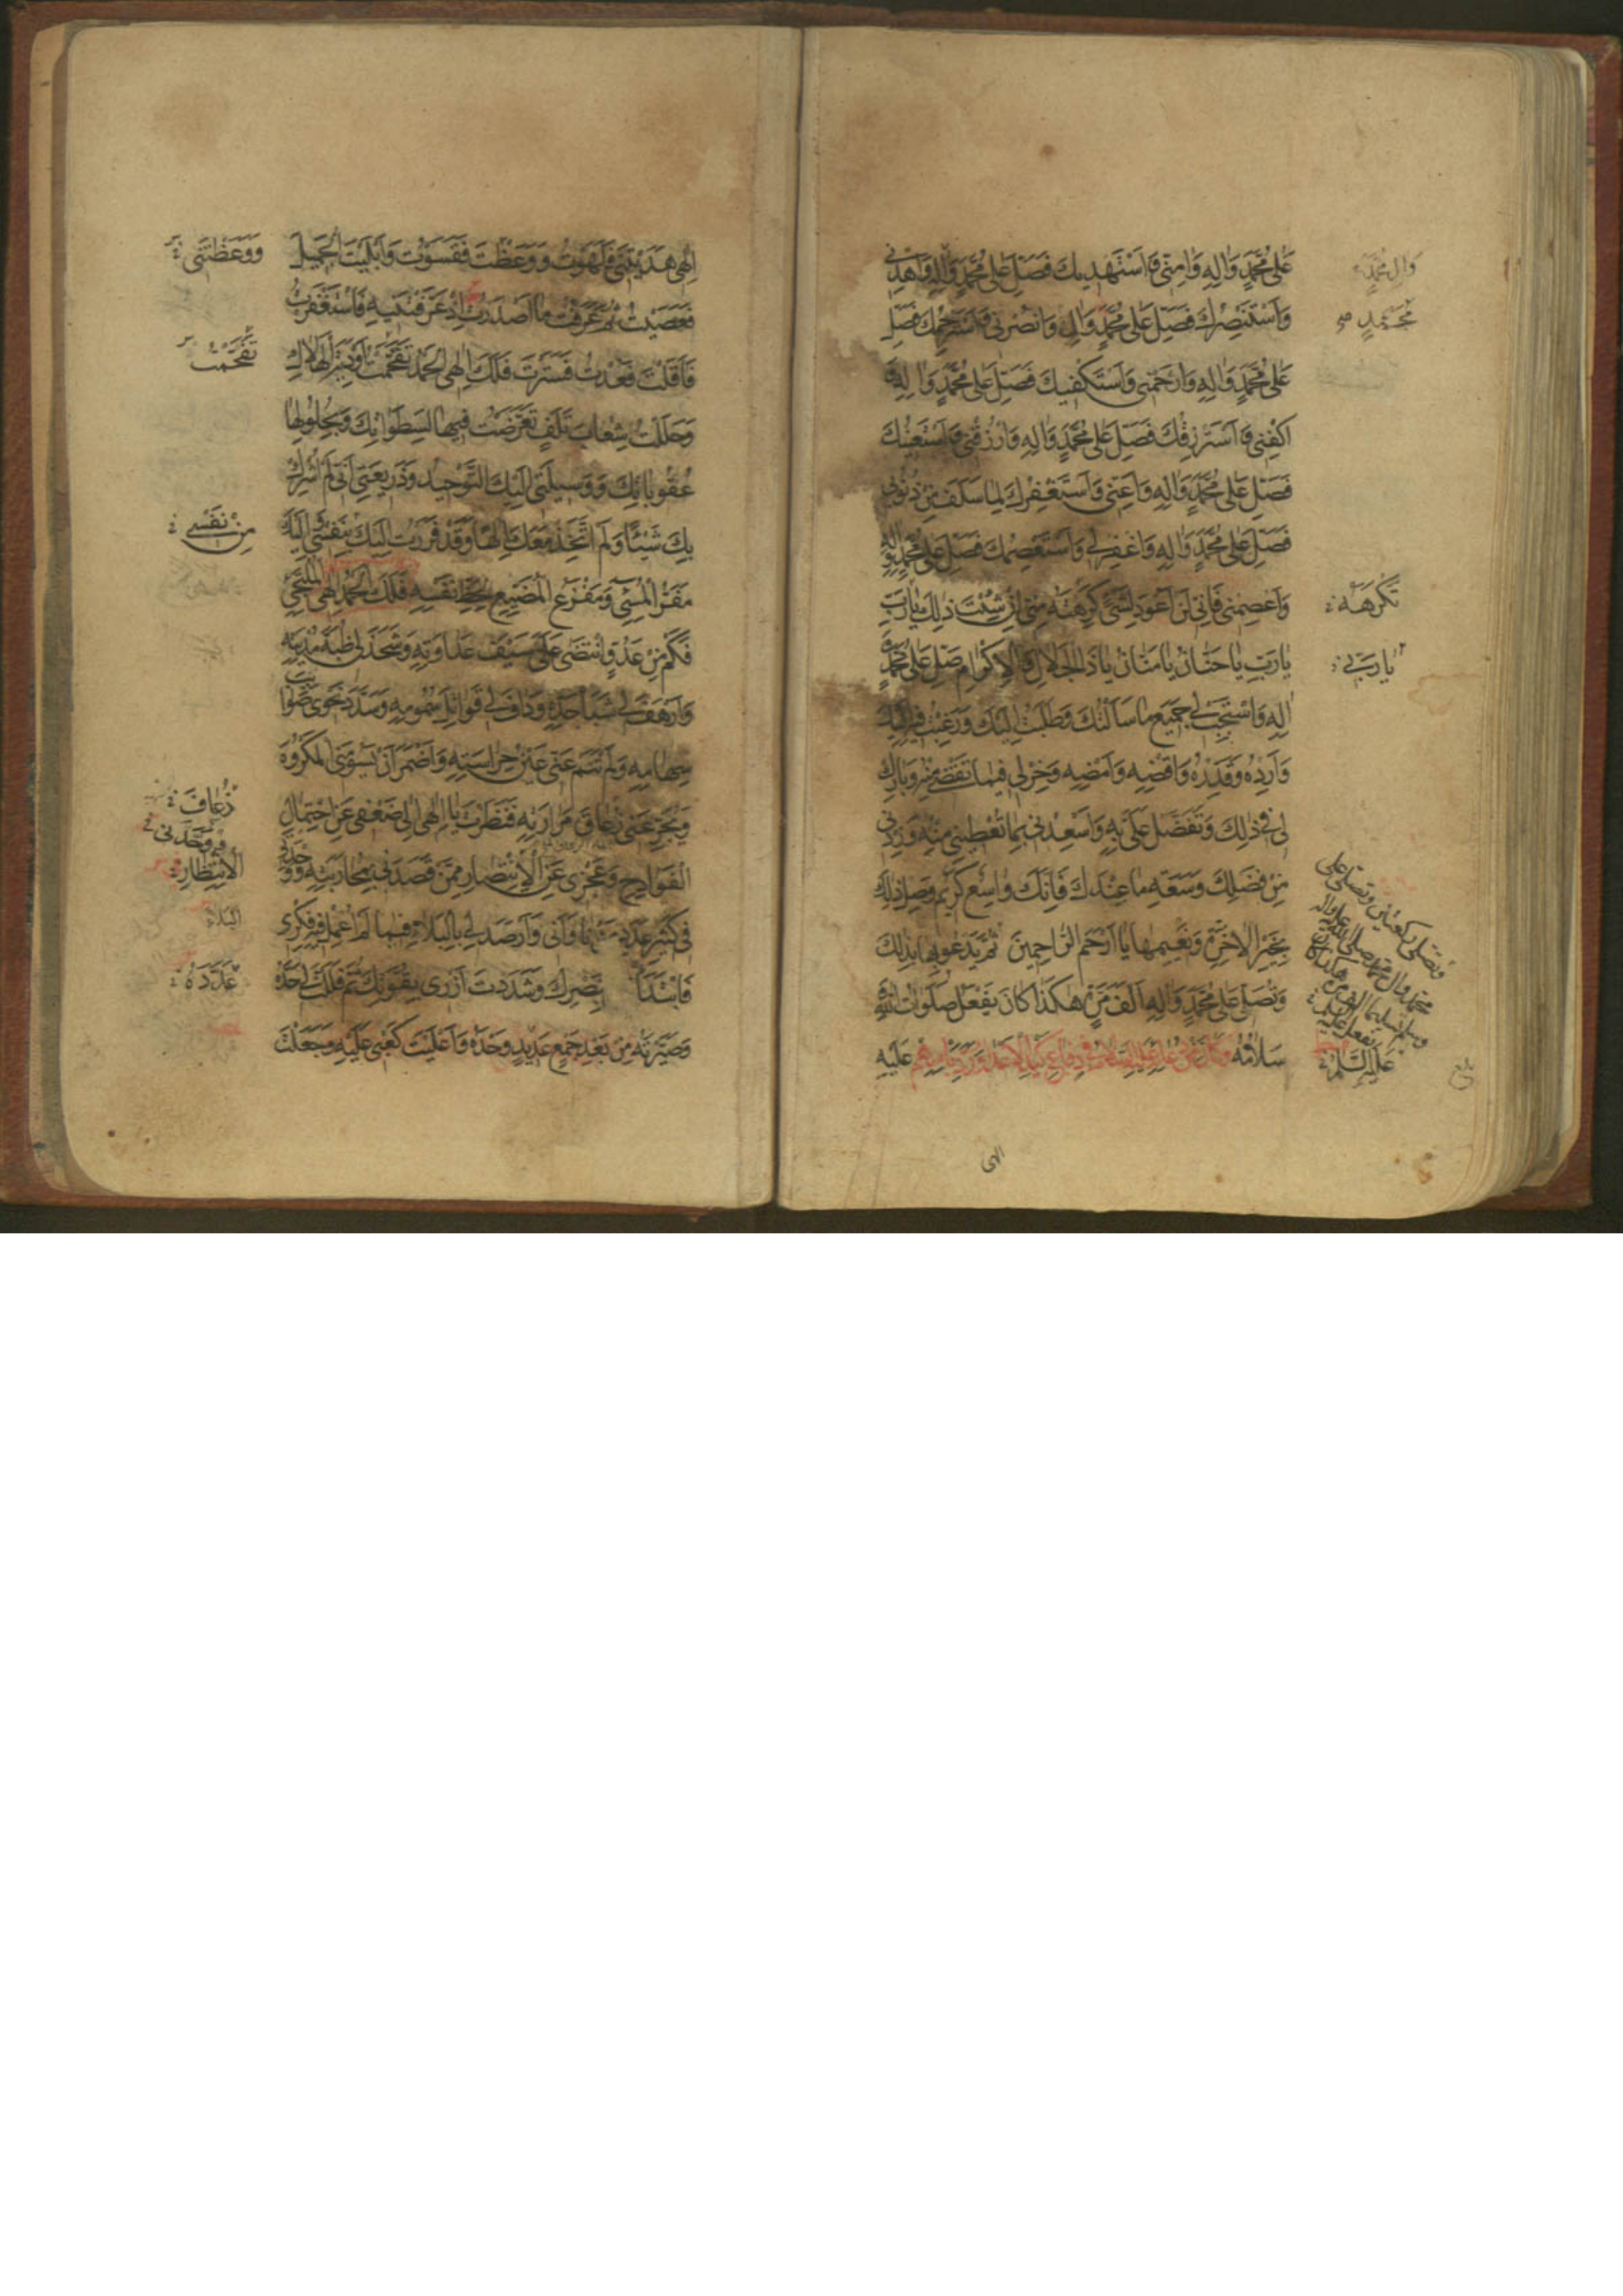 عَلىٰ مُحَمَّدٍ وَاٰلِهِ وَاٰمِنّي وَاَسْتَهْديكَ فَصَلِّ عَلىٰ مُحَمَّدٍ وَاٰلِهِ وَاهْدِني
وَاَسْتَنْصِرُكَ فَصَلِّ عَلىٰ مُحَمَّدٍ وَاٰلِهِ وَانْصُرْني وَاَسْتَرْحِمُكَ فَصَلِّ
عَلىٰ مُحَمَّدٍ وَاٰلِهِ وَارْحَمْني وَاَسْتَكْفيكَ فَصَلِّ عَلىٰ مُحَمَّدٍ وَاٰلِهِ وَ
اكْفِني وَاَسْتَرْزِقُكَ فَصَلِّ عَلىٰ مُحَمَّدٍ وَاٰلِهِ وَارْزُقْني وَاَسْتَعينُكَ
فَصَلِّ عَلىٰ مُحَمَّدٍ وَاٰلِهِ وَاَعِنّي وَاَسْتَغْفِرُكَ لِمٰا سَلَفَ مِنْ ذُنُوبي
فَصَلِّ عَلىٰ مُحَمَّدٍ وَاٰلِهِ وَاغْفِرْ لي وَاَسْتَعْصِمُكَ فَصَلِّ عَلىٰ مُحَمَّدٍ وَاٰلِهِ
وَاعْصِمْني فَاِنّي لَنْ اَعُودَ لِشَيْءٍ كَرِهْتَهُ مِنّي اِنْ شِئْتَ ذٰلِكَ يٰا رَبِّ
يٰا رَبِّ يٰا حَنّٰانُ يٰا مَنّٰانُ يٰا ذَا الْجَلاٰلِ وَالْاِكْرٰامِ صَلِّ عَلىٰ مُحَمَّدٍ وَ
اٰلِهِ وَاسْتَجِبْ لي جَميعَ مٰا سَاَلْتُكَ وَطَلَبْتُ اِلَيْكَ وَرَغِبْتُ فيهِ اِلَيْكَ
وَاَرِدْهُ وَقَدِّرْهُ وَاقْضِهِ وَاَمْضِهِ وَخِرْ لي فيمٰا تَقْضي مِنْهُ وَبٰارِكْ
لي في ذٰلِكَ وَتَفَضَّلْ عَلَيَّ بِهِ وَاَسْعِدْني بِمٰا تُعْطيني مِنْهُ وَزِدْني
مِنْ فَضْلِكَ وَسَعَةِ مٰا عِنْدَكَ فَاِنَّكَ وٰاسِعٌ كَريمٌ وَصِلْ ذٰلِكَ
بِخَيْرِ الْاٰخِرَةِ وَنَعيمِهٰا يٰا اَرْحَمَ الرّٰاحِمينَ ثُمَّ تَدْعُو بِمٰا بَدٰا لَكَ
وَتُصَلّي عَلىٰ مُحَمَّدٍ وَاٰلِهِ اَلْفَ مَرَّةٍ هٰكَذٰا كٰانَ يَفْعَلُ صَلَوٰاتُ اللّٰهِ وَ
سَلاٰمُهُ عَلَيْهِ
وَاٰلِ مُحَمَّدٍ
مُحَمَّدٍ
تَكْرَهُهُ
يٰا رَبّي
عَلَيْهِ السَّلاٰمُ
الهى
اِلٰهي هَدَيْتَني فَلَهَوْتُ وَوَعَظْتَ فَقَسَوْتُ وَاَبْلَيْتَ الْجَميلَ
فَعَصَيْتُ ثُمَّ عَرَفْتُ مٰا اَصْدَرْتَ اِذْ عَرَّفْتَنيهِ فَاسْتَغْفَرْتُ
فَاَقَلْتَ فَعُدْتُ فَسَتَرْتَ فَلَكَ اِلٰهي الْحَمْدُ تَقَحَّمْتُ اَوْدِيَةَ الْهَلاٰكِ
وَحَلَلْتُ شِعٰابَ تَلَفٍ تَعَرَّضْتُ فيهٰا لِسَطَوٰاتِكَ وَبِحُلُولِهٰا
عُقُوبٰاتِكَ وَوَسيلَتي اِلَيْكَ التَّوْحيدُ وَذَريعَتي اَنّي لَمْ اُشْرِكْ
بِكَ شَيْئًا وَلَمْ اَتَّخِذْ مَعَكَ اِلٰهًا وَقَدْ فَرَرْتُ اِلَيْكَ بِنَفْسي وَاِلَيْكَ
مَفَرُّ الْمُسيءِ وَمَفْزَعُ الْمُضَيِّعِ لِحَظِّ نَفْسِهِ الْمُلْتَجِئِ فَلَكَ الْحَمْدُ اِلٰهي
فَكَمْ مِنْ عَدُوٍّ انْتَضىٰ عَلَيَّ سَيْفَ عَدٰاوَتِهِ وَشَحَذَ لي ظُبَةَ مُدْيَتِهِ
وَاَرْهَفَ لي شَبٰا حَدِّهِ وَدٰافَ لي قَوٰاتِلَ سُمُومِهِ وَسَدَّدَ نَحْوي صَوٰائِبَ
سِهٰامِهِ وَلَمْ تَنَمْ عَنّي عَيْنُ حِرٰاسَتِهِ وَاَضْمَرَ اَنْ يَسُومَنِي الْمَكْرُوهَ
وَيُجَرِّعَني زُعٰاقَ مَرٰارَتِهِ فَنَظَرْتَ يٰا اِلٰهي اِلىٰ ضَعْفي عَنِ احْتِمٰالِ
الْفَوٰادِحِ وَعَجْزي عَنِ الْاِنْتِصٰارِ مِمَّنْ قَصَدَني بِمُحٰارَبَتِهِ وَوَحْدَتي
في كَثيرِ عَدَدِ مَنْ نٰاوٰاني وَاَرْصَدَ لي بِالْبَلاٰءِ فيمٰا لَمْ اُعْمِلْ فيهِ فِكْري
فَابْتَدَأْتَني بِنَصْرِكَ وَشَدَدْتَ اَزْري بِقُوَّتِكَ ثُمَّ فَلَلْتَ لي حَدَّهُ
وَصَيَّرْتَهُ مِنْ بَعْدِ جَمْعٍ عَديدٍ وَحْدَهُ وَاَعْلَيْتَ كَعْبي عَلَيْهِ وَجَعَلْتَ
وَوَعَظْتَني
تَقَحَّمْتُ
مِنْ نَفْسي
ذُعٰافَ
وَتَوَحُّدي
الْاِنْتِظٰارِ
البَلاء
عَدَدِهُ